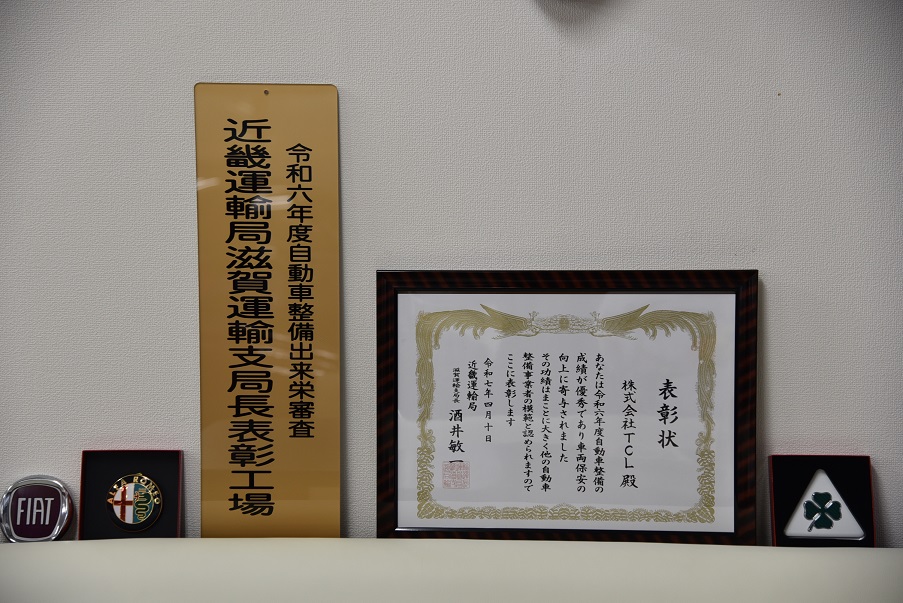 令和六年度自動車整備出来栄審査
近畿運輸局滋賀運輸支局長表彰工場
表彰状
株式会社TCL殿
あなたは令和六年度自動車整備の
成績が優秀であり車両保安の
向上に寄与されました
その功績はまことに大きく他の自動車
整備事業者の模範と認められますので
ここに表彰します
令和七年四月十日
近畿運輸局
滋賀運輸支局長
酒井敏一
FIAT
ALFA ROMEO